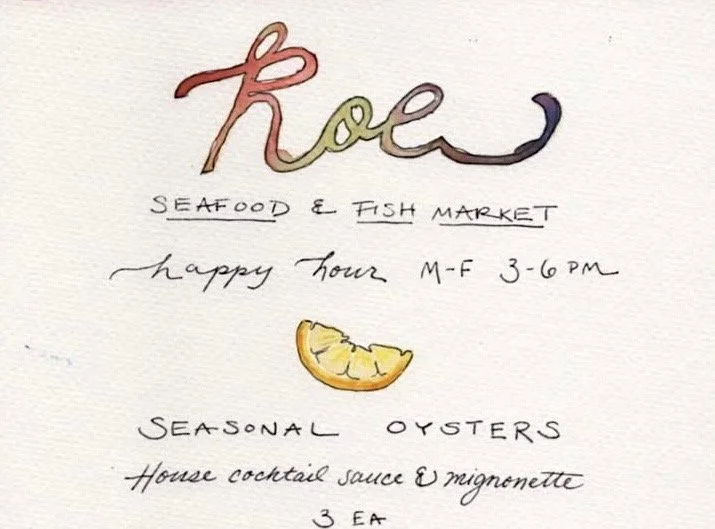 Roe
SEAFOOD & FISH MARKET
happy hour M-F 3-6 PM
SEASONAL OYSTERS
House cocktail sauce & mignonette
3 EA